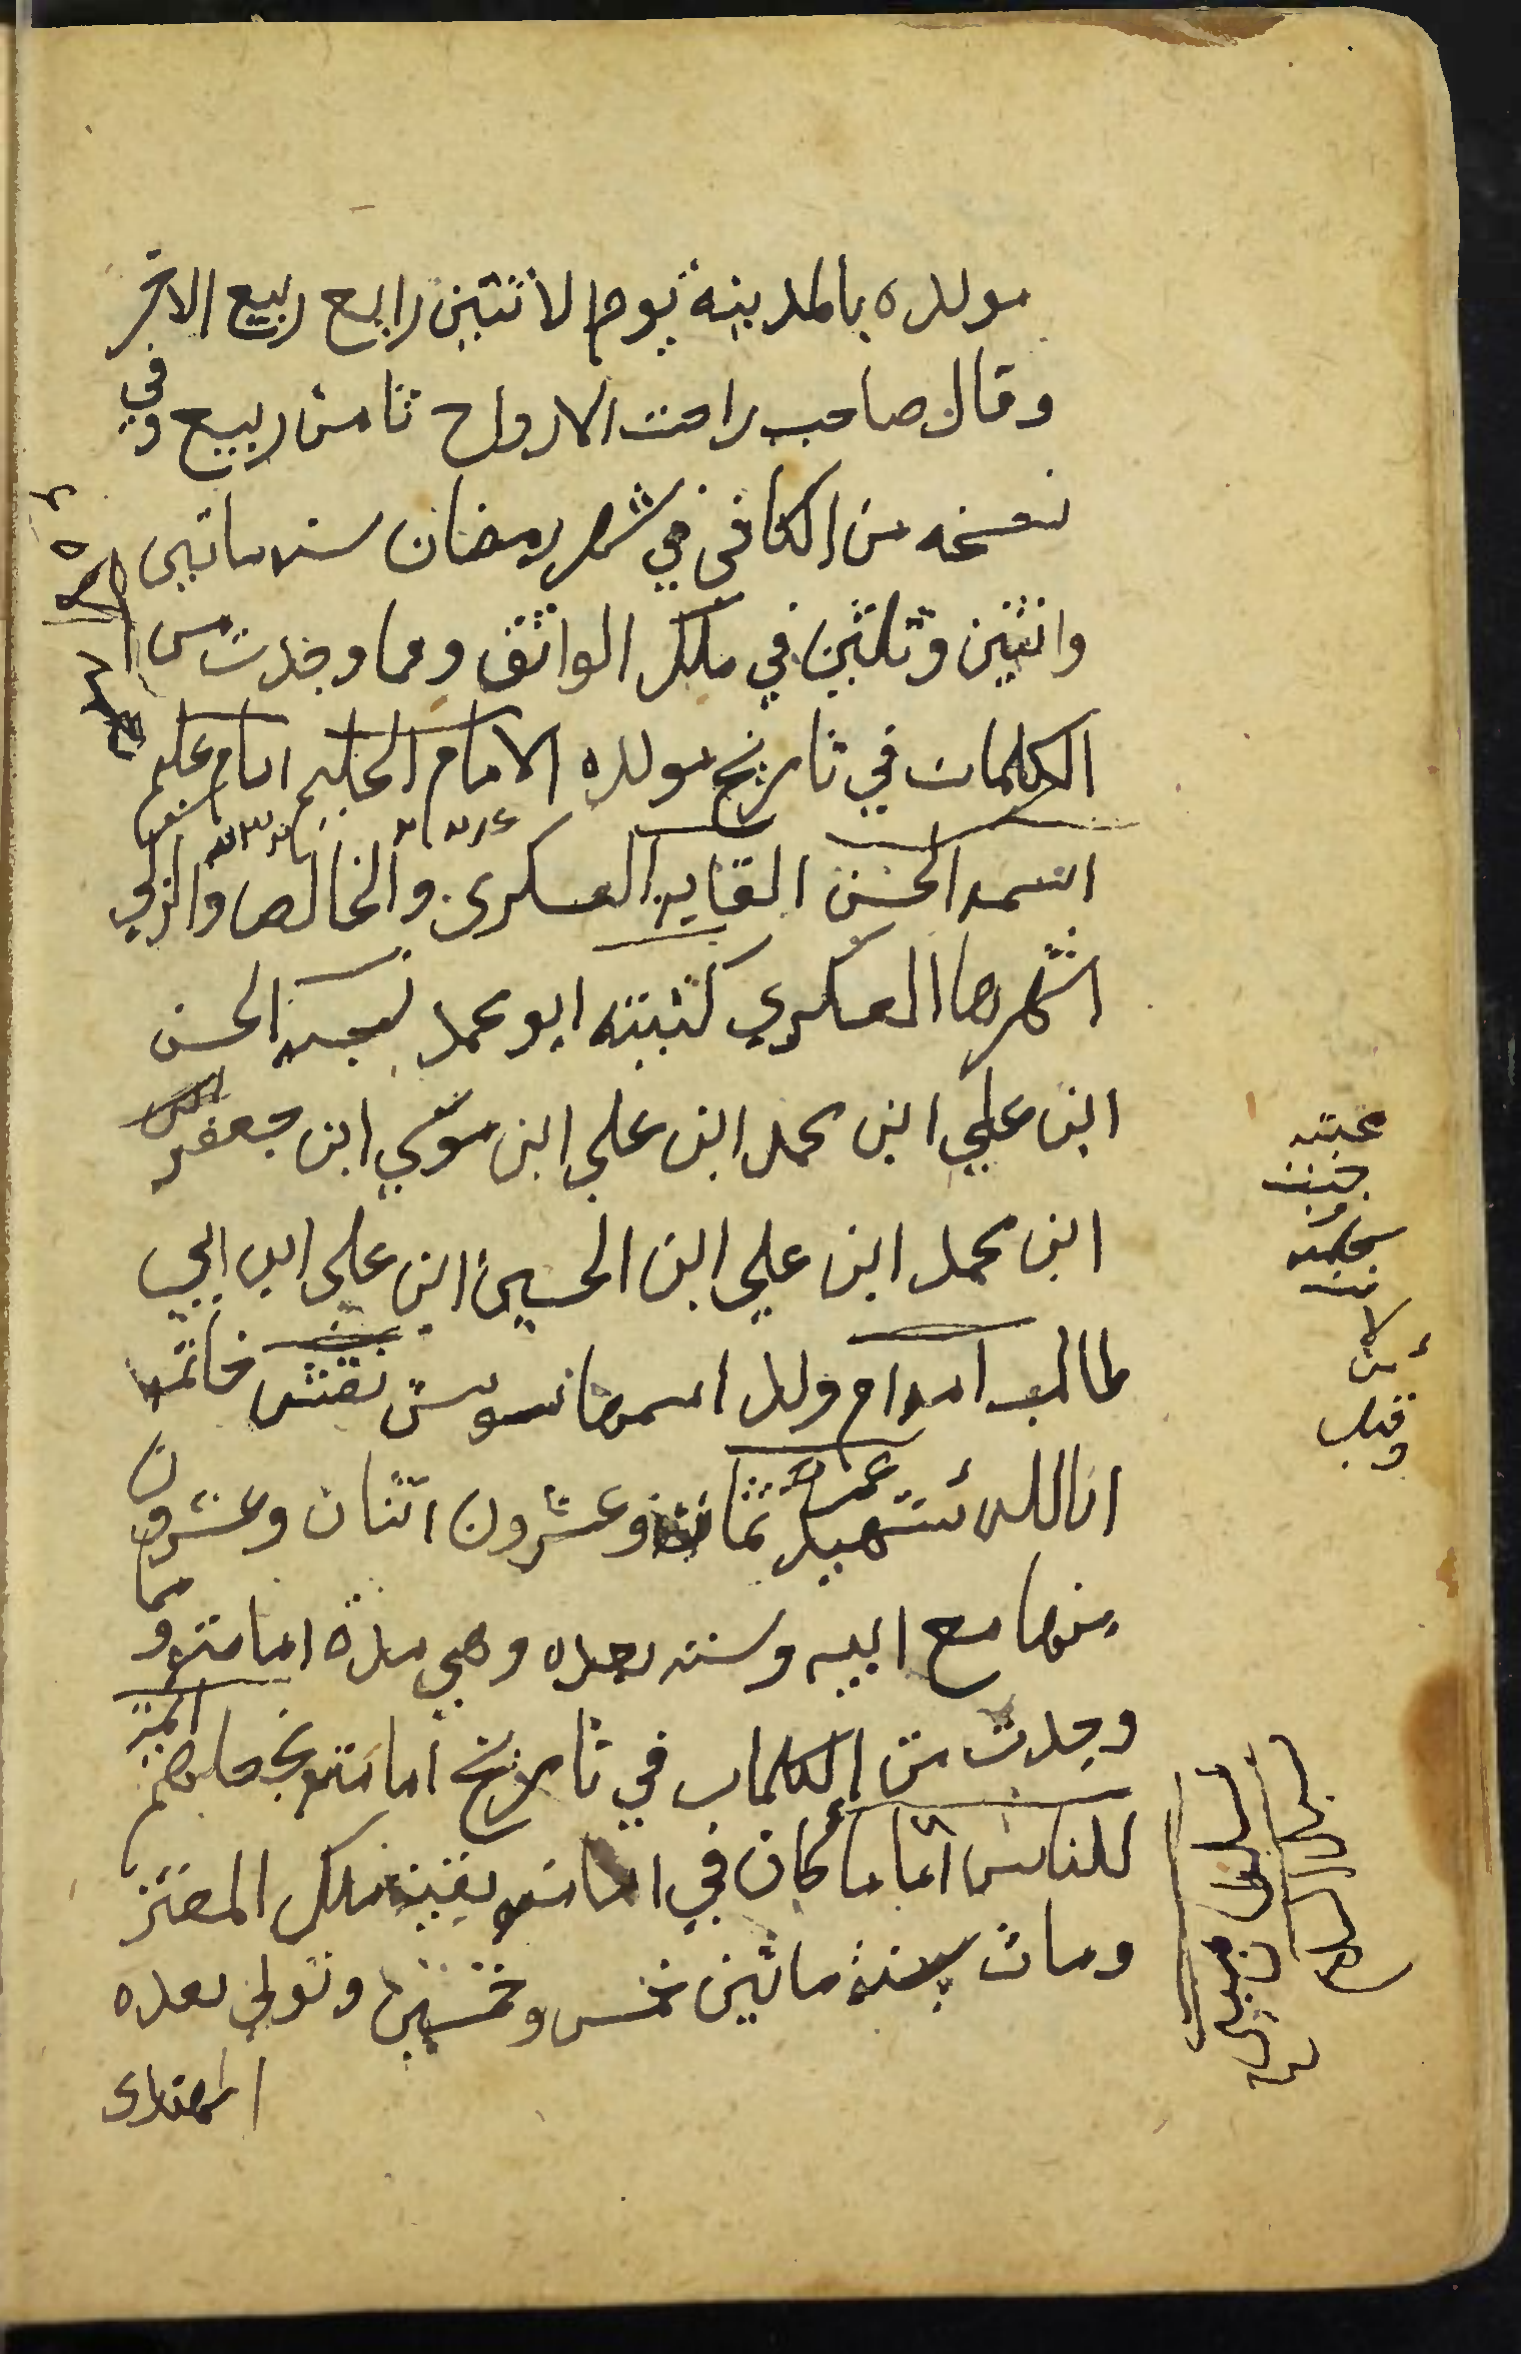 مولده بالمدينة يوم الاثنين رابع ربيع الاخر
وقال صاحب راحت الارواح ثامن ربيع وفي
نسخه من الكافي في شهر رمضان سنه ماتين
واثنين وثلثين في ملك الواثق ومما وجدت من
الكلمات في تاريخ مولده الامام الحليم امام عليم
اسمه الحسن القابه العسكري والخالص والزكي
اشهرها العسكري كنيته ابو محمد نسبه الحسن
ابن علي ابن محمد ابن علي ابن موسي ابن جعفر
ابن محمد ابن علي ابن الحسين ابن علي ابن ابي
طالب امه ام ولد اسمها سوسن نقش خاتمه
انا لله شهيد عمره ثمانية وعشرون اثنان وعشرون
منها مع ابيه وسته بعده وهي مدة امامته ومما
وجدت من الكلمات في تاريخ امامته نجعلهم ائمة
للناس اماما كان في امامته بقية ملك المعتز
ومات سنة مائين خمس وخمسين وتولي بعده
المهتدى